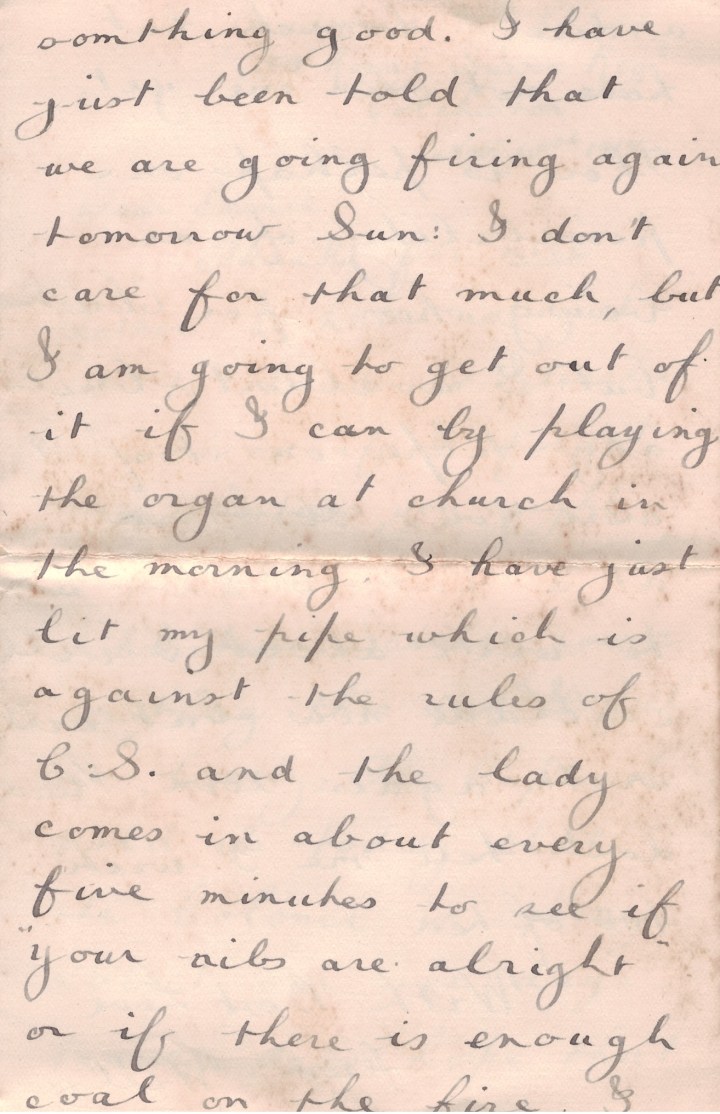 somthing good. I have
just been told that
we are going firing again
tomorrow Sun: I don't
care for that much, but
I am going to get out of
it if I can by playing
the organ at church in
the morning. I have just
lit my pipe which is
against the rules of
C.S. and the lady
comes in about every
five minutes to see if
"your nibs are alright"
or if there is enough
coal on the fire. I